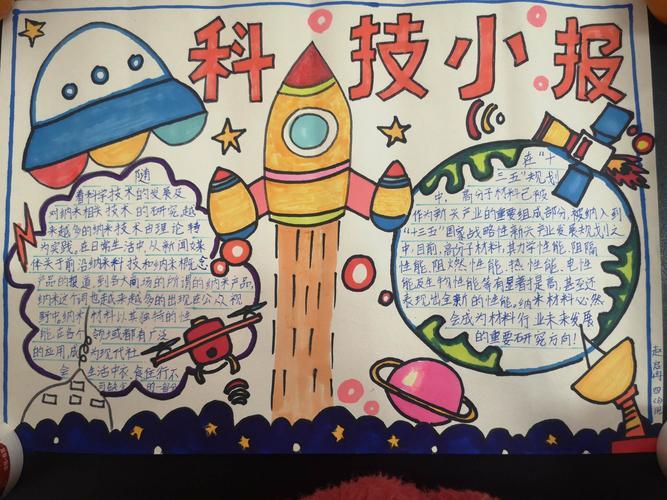 科技小报
随
着科学技术的发展及
对纳米相关技术的研究,越
来越多的纳米技术由理论转
为实践,在日常生活中,从新闻媒
体关于前沿纳米科技和纳米概念
产品的报道,到各大商场的所谓的纳米产品,
纳米这个词也越来越多的出现在公众视
野中,纳米材料以其独特的性
能,在各个领域都有广泛
的应用,成为现代社
会生活中衣食住行不
在"十
三五"规划
中,高分子材料已被
作为新兴产业的重要组成部分,被纳入到
"十三五"国家战略性新兴产业发展规划之
中,目前,高分子材料,其力学性能,阻隔
性能,阻燃性能,热性能,电性
能及生物性能等有显著提高,甚至还
表现出全新的性能,纳米材料必然
会成为材料行业未来发展
的重要研究方向!